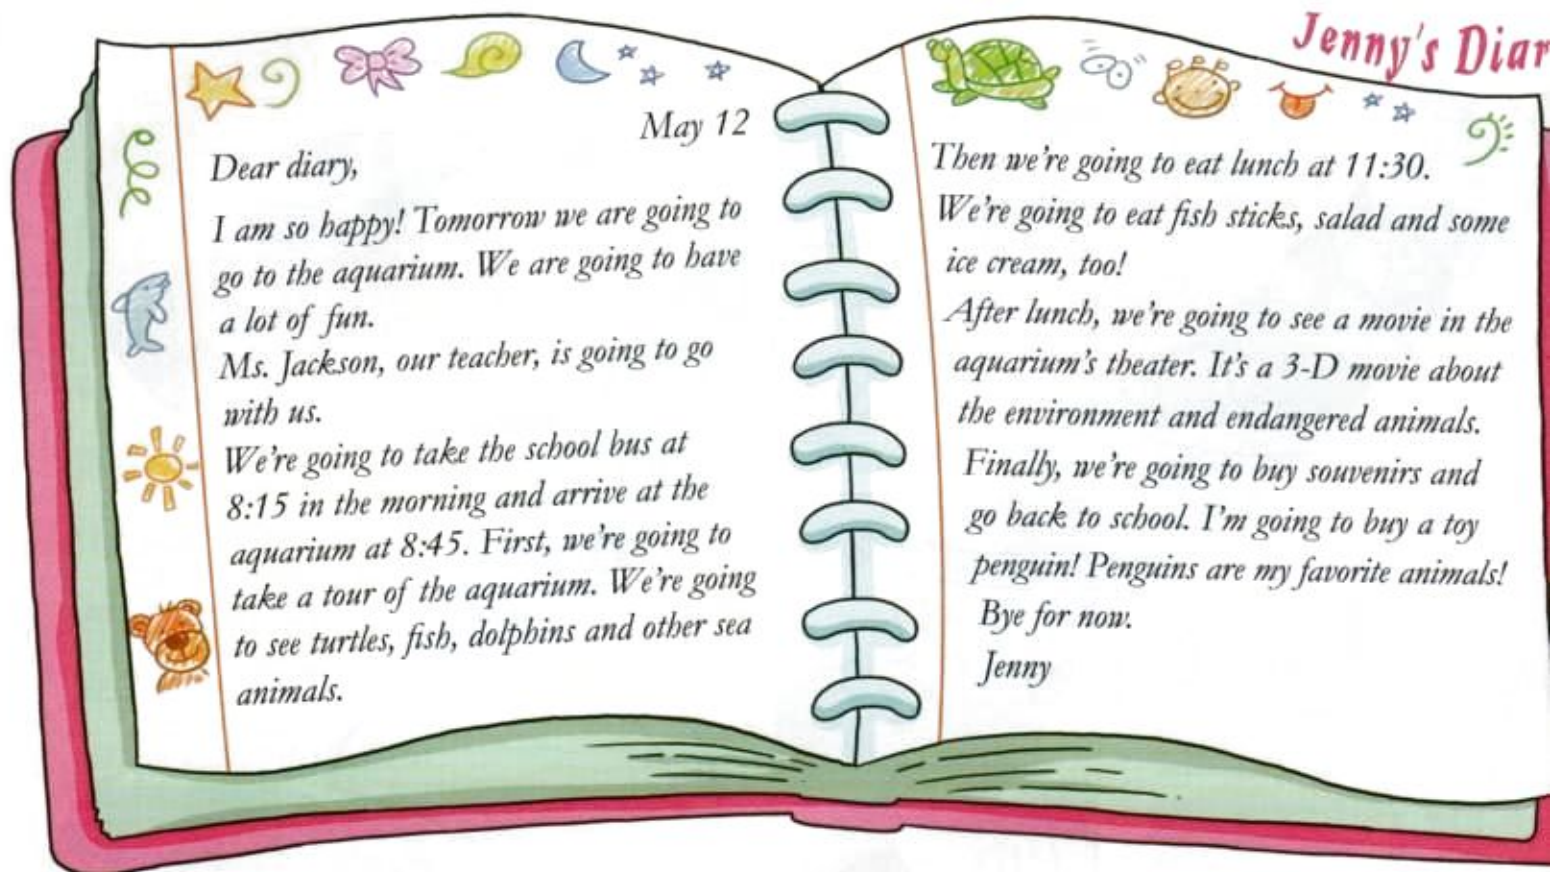 Jenny's Diar
May 12
Dear diary,
I am so happy! Tomorrow we are going to
go to the aquarium. We are going to have
a lot of fun.
Ms. Jackson, our teacher, is going to go
with us.
We're going to take the school bus at
8:15 in the morning and arrive at the
aquarium at 8:45. First, we're going to
take a tour of the aquarium. We're going
to see turtles, fish, dolphins and other sea
animals.
Then we're going to eat lunch at 11:30.
We're going to eat fish sticks, salad and some
ice cream, too!
After lunch, we're going to see a movie in the
aquarium's theater. It's a 3-D movie about
the environment and endangered animals.
Finally, we're going to buy souvenirs and
go back to school. I'm going to buy a toy
penguin! Penguins are my favorite animals!
Bye for now.
Jenny